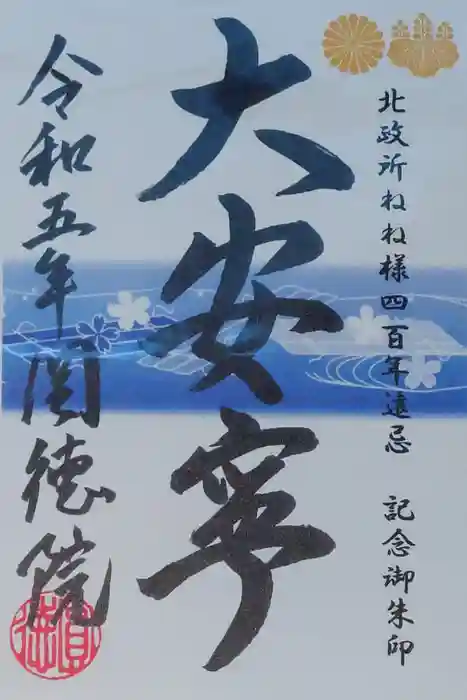 北政所ねね様四百年遠忌 記念御朱印
大安寧
令和五年圓徳院
圓徳